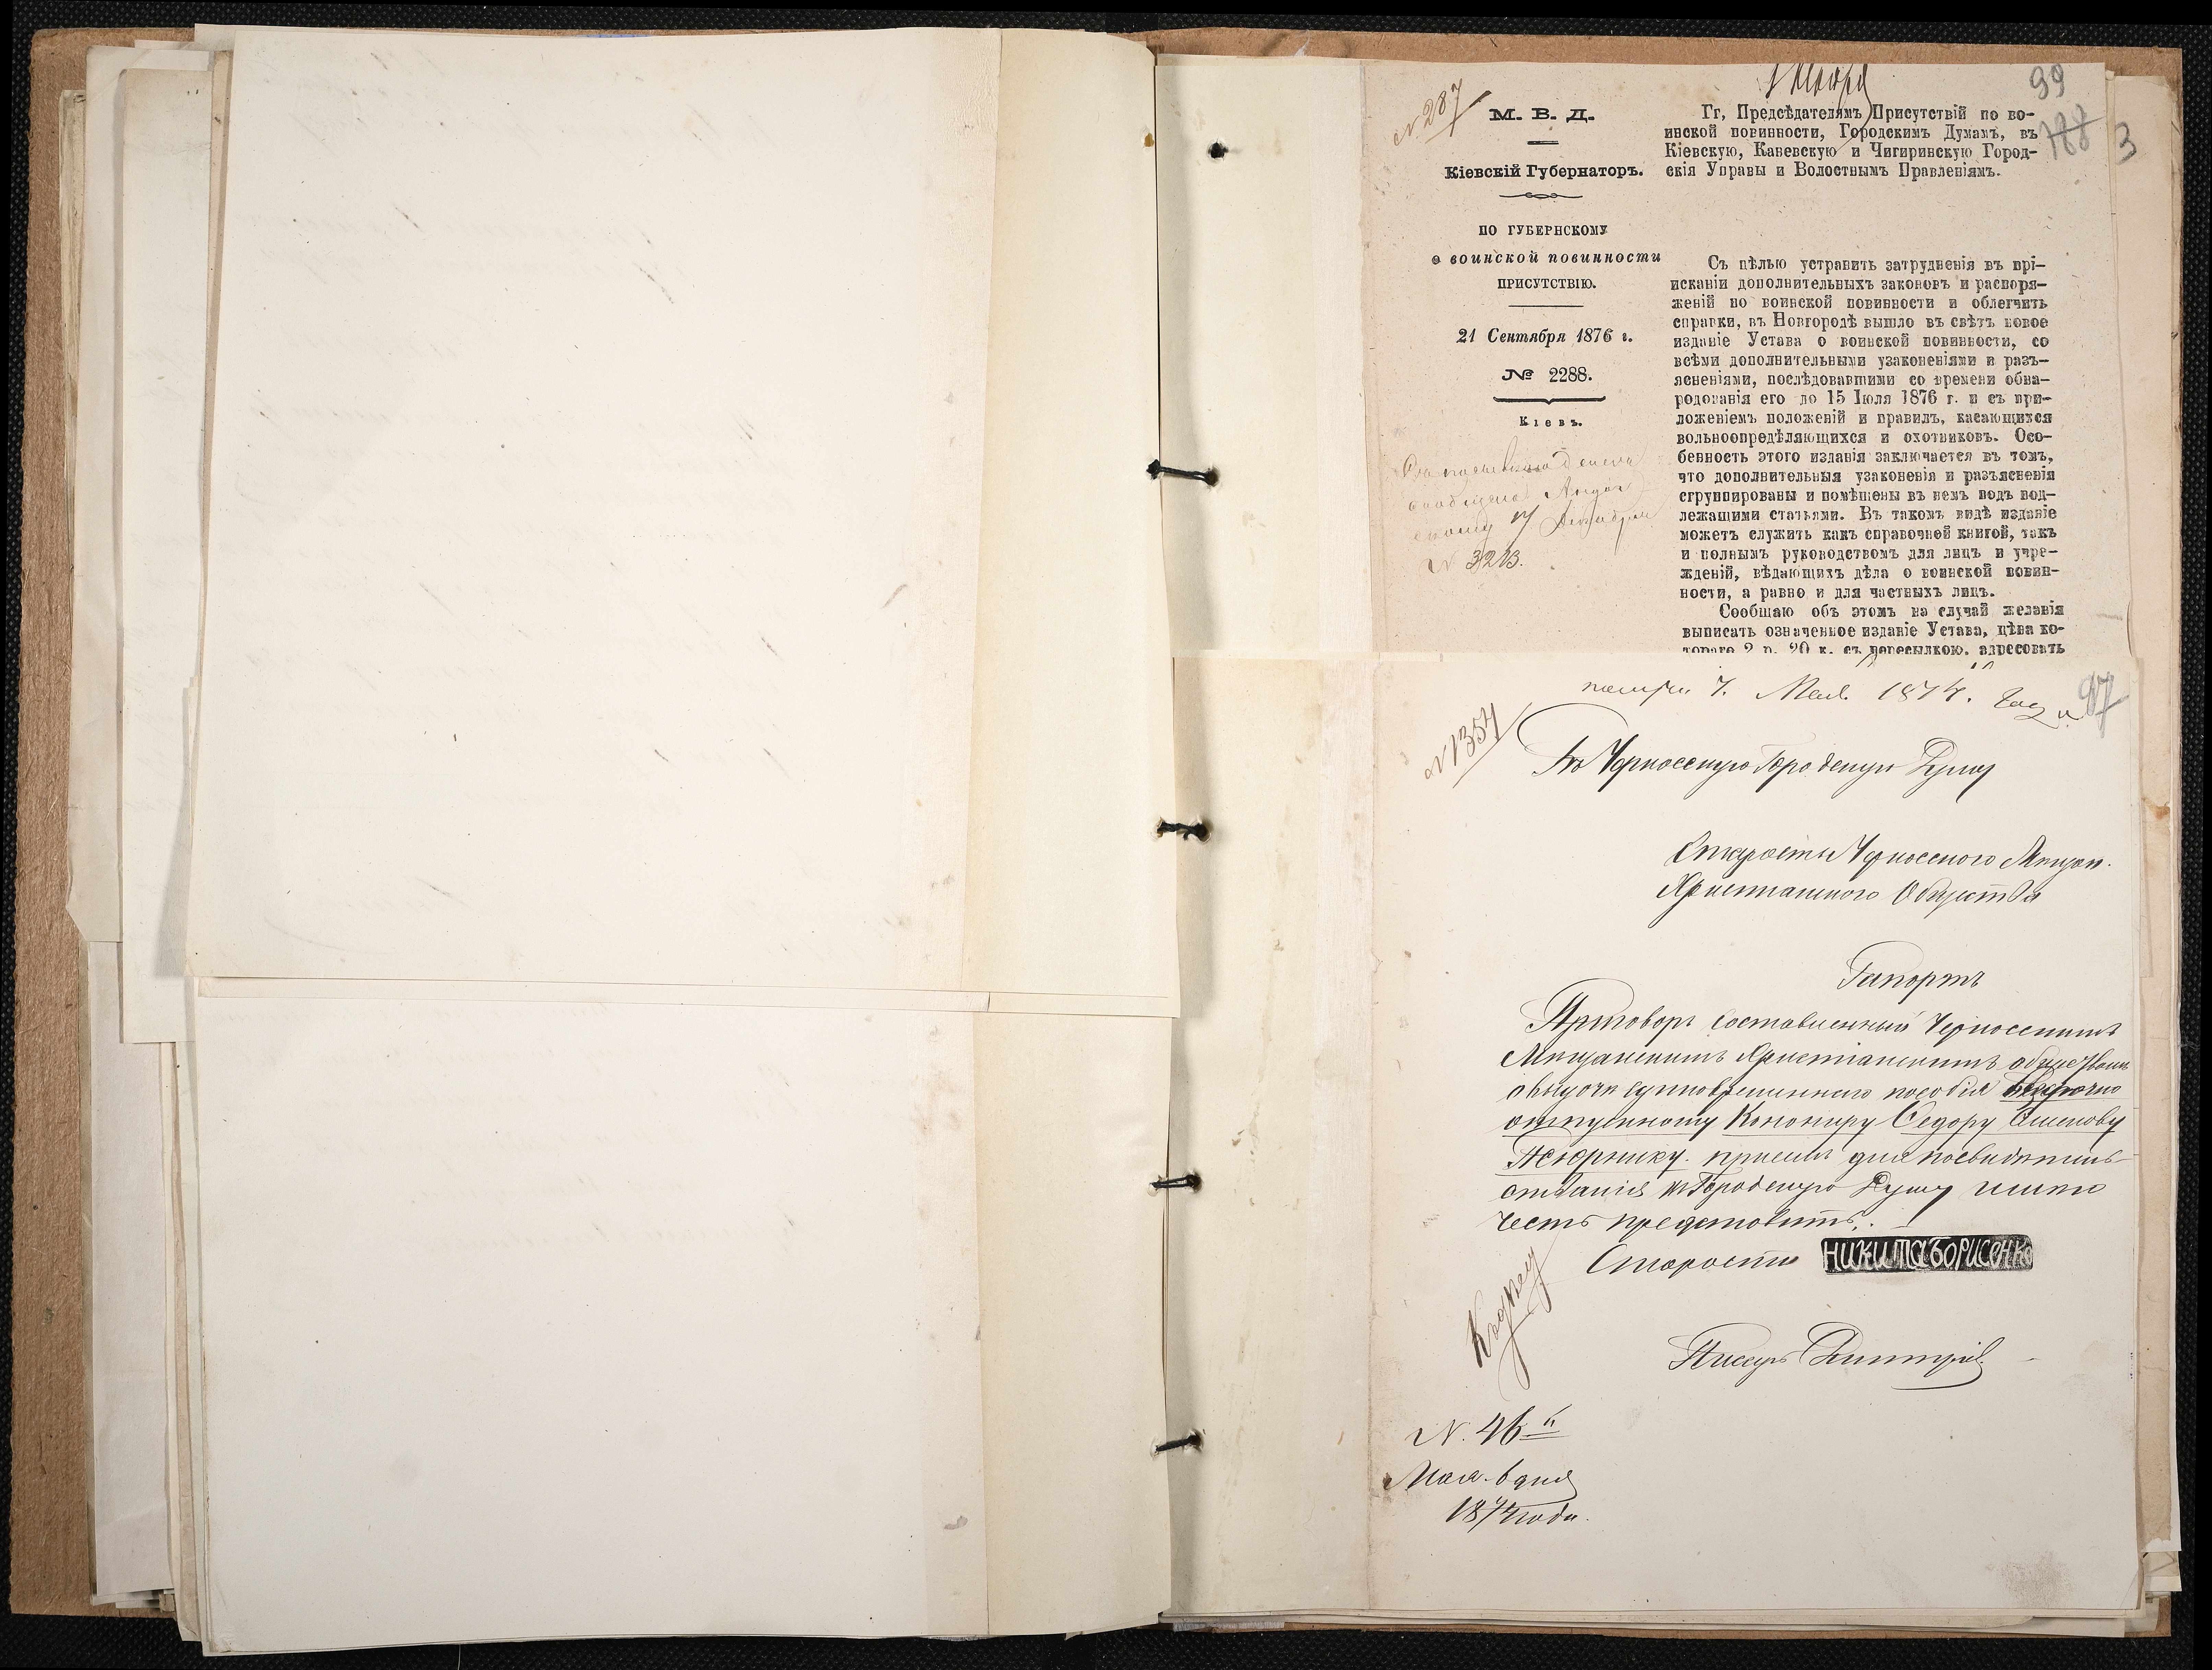 N 287
99
188
3
М. В. Д.
Кіевскій Губернаторъ.
ПО ГУБЕРНСКОМУ
о воинской повинности
ПРИСУТСТВІЮ.
21 Сентября 1876 г.
№ 2288.
Кіевъ.
N 3213.
Гг, Предсѣдателямъ Присутствій по во-
инской повинности, Городскимъ Думамъ, въ
Кіевскую, Каневскую и Чигиринскую Город-
скія Управы и Волостнымъ Правленіямъ.
Съ цѣлью устранить затрудненія въ прі-
исканіи дополнительныхъ законовъ и распоря-
женій по воинской повинности и облегчить
справки, въ Новгородѣ вышло въ свѣтъ новое
изданіе Устава о воинской повинности, со
всѣми дополнительными узаконеніями и разъ-
ясненіями, послѣдовавшими со времени обна-
родованія его до 15 Іюля 1876 г. и съ при-
ложеніемъ положеній и правилъ, касающихся
вольноопредѣляющихся и охотниковъ. Осо-
бенность этого изданія заключается въ томъ,
что дополнительныя узаконенія и разъясненія
сгруппированы и помѣщены въ немъ подъ под-
лежащими статьями. Въ такомъ видѣ изданіе
можетъ служить какъ справочной книгой, такъ
и полнымъ руководствомъ для лицъ и учре-
жденій, вѣдающихъ дѣла о воинской повин-
ности, а равно и для частныхъ лицъ.
Сообщаю объ этомъ на случай желанія
выписать означенное изданіе Устава, цѣна ко-
тораго 2 р. 20 к. съ пересылкою, адресовать
7. Мая 1874. года
97
N 1354
Въ Черкасскую Городскую Думу
Старосты Черкасского Мещан.
Христианского Общества
Рапортъ
Приговоръ составленный Черкасскимъ
Мещанскимъ Христіанскимъ обществомъ
о выдачи единовременнаго пособія безсрочно
отпускному Канониру Федору Семенову
присемъ для засвидетель-
ствованія въ Городскую Думу имею
честь представить.
Староста НИКИТА БОРИСЕНКО
Писарь Дмитріев
N. 46й
Мая 6 дня
1874 года.